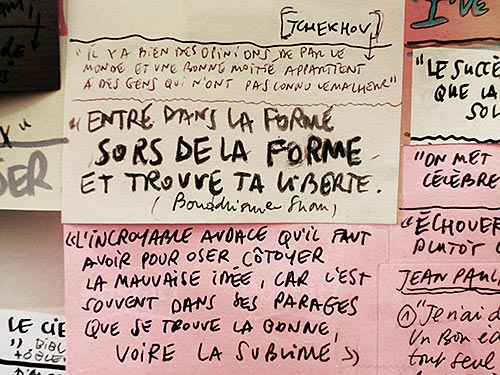 [TCHEKHOV]
"IL Y A BIEN DES OPINIONS DE PAR LE
MONDE ET UNE BONNE MOITIÉ APPARTIENT
À DES GENS QUI N'ONT PAS CONNU LE MALHEUR"
"ENTRE DANS LA FORME
SORS DE LA FORME
ET TROUVE TA LIBERTÉ.
(Bouddhisme
"L'INCROYABLE AUDACE QU'IL FAUT
AVOIR POUR OSER CÔTOYER
LA MAUVAISE IDÉE, CAR C'EST
SOUVENT DANS SES PARAGES
QUE SE TROUVE LA BONNE
VOIRE LA SUBLIME"
"LE SUCCÈ
QUE LA
SOL
"ON MET
CÉLÈBRE
"ÉCHOUER
PLUTÔT
JEAN PAUL
① "Je n'ai d
Un Bon é
tout seul
LE CIE